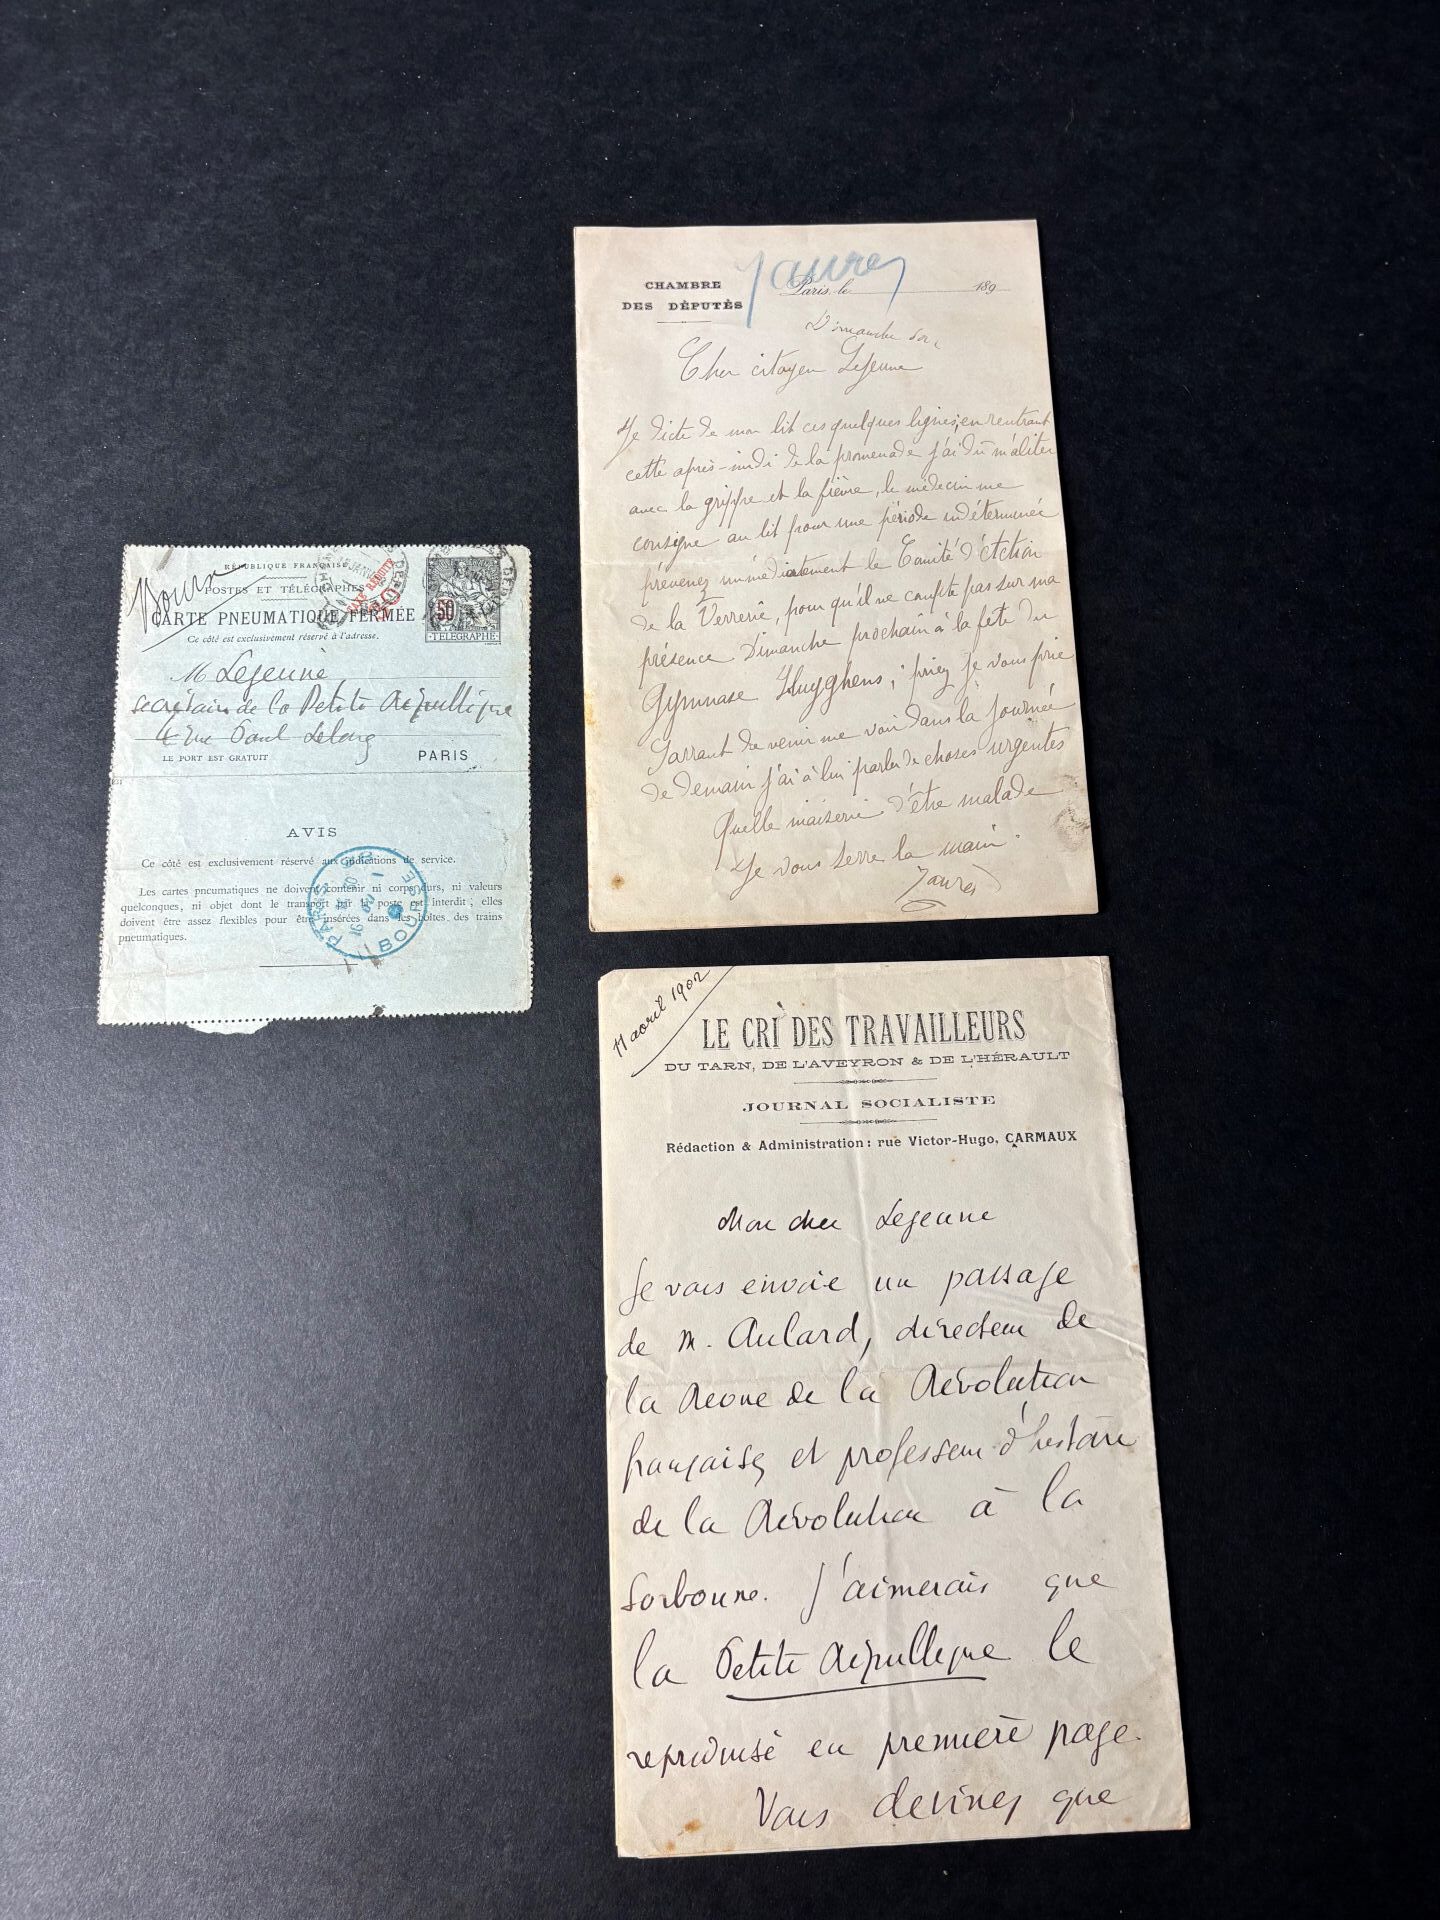 RÉPUBLIQUE FRANÇAISE
POSTES ET TÉLÉGRAPHES
CARTE PNEUMATIQUE FERMÉE
Ce côté est exclusivement réservé à l'adresse.
TAXE RÉDUITE
50
TÉLÉGRAPHE
M Lejeune
secrétaire de la Petite République
rue Paul Lelong
LE PORT EST GRATUIT
PARIS
AVIS
Ce côté est exclusivement réservé aux indications de service.
Les cartes pneumatiques ne doivent contenir ni corps durs, ni valeurs
quelconques, ni objet dont le transport par la poste est interdit; elles
doivent être assez flexibles pour être insérées dans les boîtes des trains
pneumatiques.
PARIS
BOURSE
Jaurès
CHAMBRE
DES DÉPUTÉS
Paris, le 189
Dimanche soir
Cher citoyen Lejeune
Je dicte de mon lit ces quelques lignes; en rentrant
cette après-midi de la promenade j'ai dû m'aliter
avec la grippe et la fièvre, le médecin me
consigne au lit pour une période indéterminée
prévenez immédiatement le Comité d'Action
de la Verrerie, pour qu'il ne compte pas sur ma
présence Dimanche prochain à la fête du
Gymnase Huyghens; priez je vous prie
de venir me voir dans la journée
de demain j'ai à lui parler de choses urgentes
Quelle miaiserie d'être malade
Je vous serre la main.
Jaurès
11 avril 1902
LE CRI DES TRAVAILLEURS
DU TARN, DE L'AVEYRON & DE L'HÉRAULT
JOURNAL SOCIALISTE
Rédaction & Administration: rue Victor-Hugo, CARMAUX
Mon cher Lejeune
Je vous envoie un passage
de M. Aulard, directeur de
la Revue de la Révolution
française et professeur d'histoire
de la Révolution à la
Sorbonne. J'aimerais que
la Petite République le
reproduise en première page.
Vous devinez que